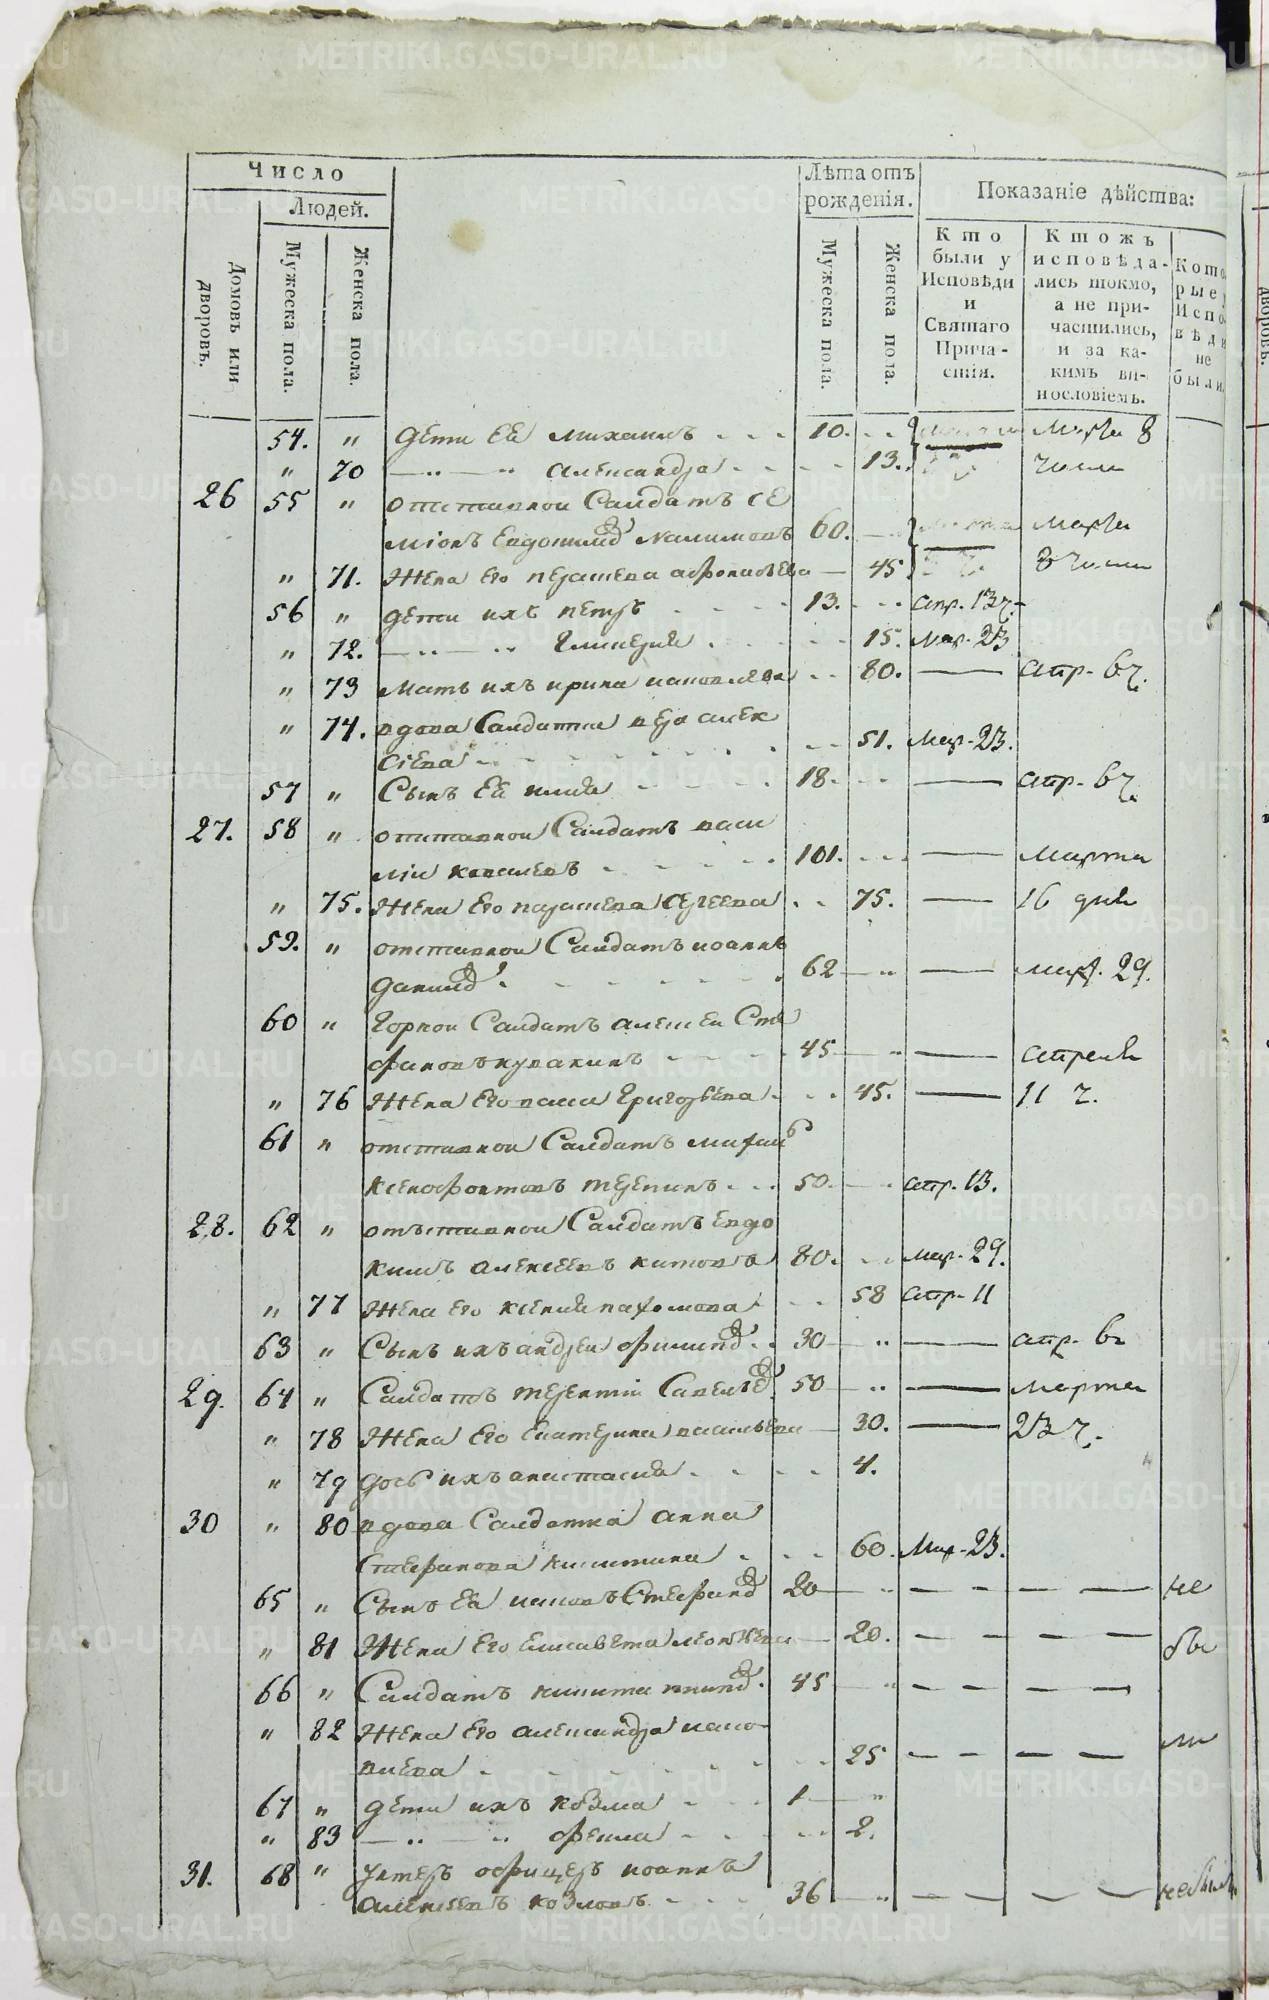 Число
Людей.
Домовъ или дворовъ.
Мужеска пола.
Женска пола.
Лѣта отъ рожденія.
Мужеска пола.
Женска пола.
Показаніе дѣйства:
Кто были у Исповѣди и Святаго Причастія.
Ктожъ исповѣдались токмо, а не причастились, и за какимъ винословіемъ.
Которые у Исповѣди не были.
54. " дети Ея Михаилъ 10. Марта 8
" 70 Александра 13. числа
26 55 " отставнои Салдатъ Се
міонъ Евдокимов Налимовъ 60. Марта
" 71. Жена Его 45 8 числа
56 " дети ихъ петръ 13. апр. 13 ч.
" 72. Гликерия 15. Мар. 23
" 73 Мать ихъ ирина иаковлева 80. — апр. 6 ч.
" 74. вдова Салдатка вера алек
сіева 51. Мар. 23.
57 " Сынъ Ея илия 18. — апр. 6 ч.
27. 58 " отставнои Салдатъ васи
ліи ковалевъ 101. — Марта
" 75. Жена Его параскева Сергеева 75. — 16 дня
59. " отставнои Салдатъ иоаннъ
данилов 62 — мар. 29.
60 " Горнои Салдатъ алексеи Сте
фановъ куракинъ 45 — апреля
" 76 Жена Его васса Григорьева 45. — 11 ч.
61 " отставнои Салдатъ
ксенофонтовъ 50. апр. 13.
28. 62 " отъставнои Салдатъ Евдо
кимъ алексеевъ китовъ 80. мар. 29.
" 77 Жена Его ксения пахомова 58 апр. 11
63 " Сынъ ихъ андреи филипов 30 — апр. 6 ч
29. 64 " Салдатъ терентіи Савельев 50 — марта
" 78 Жена Его Екатерина васильева 30. — 23 ч.
" 79 дочь ихъ анастасия 4.
30 " 80 вдова Салдатка анна
Стефанова 60. Мар. 23.
65 " Сынъ Ея иаковъ Стефанов 20 — не
" 81 Жена Его Елисавета 20. — бы
66 " Салдатъ никита 45 —
" 82 Жена Его александра иако
влева 25 — ли
67 " дети ихъ козма 1
" 83 фекла 2.
31. 68 " унтеръ офицеръ иоаннъ
алексеевъ козловъ 36 — небыли
METRIKI.GASO-URAL.RU